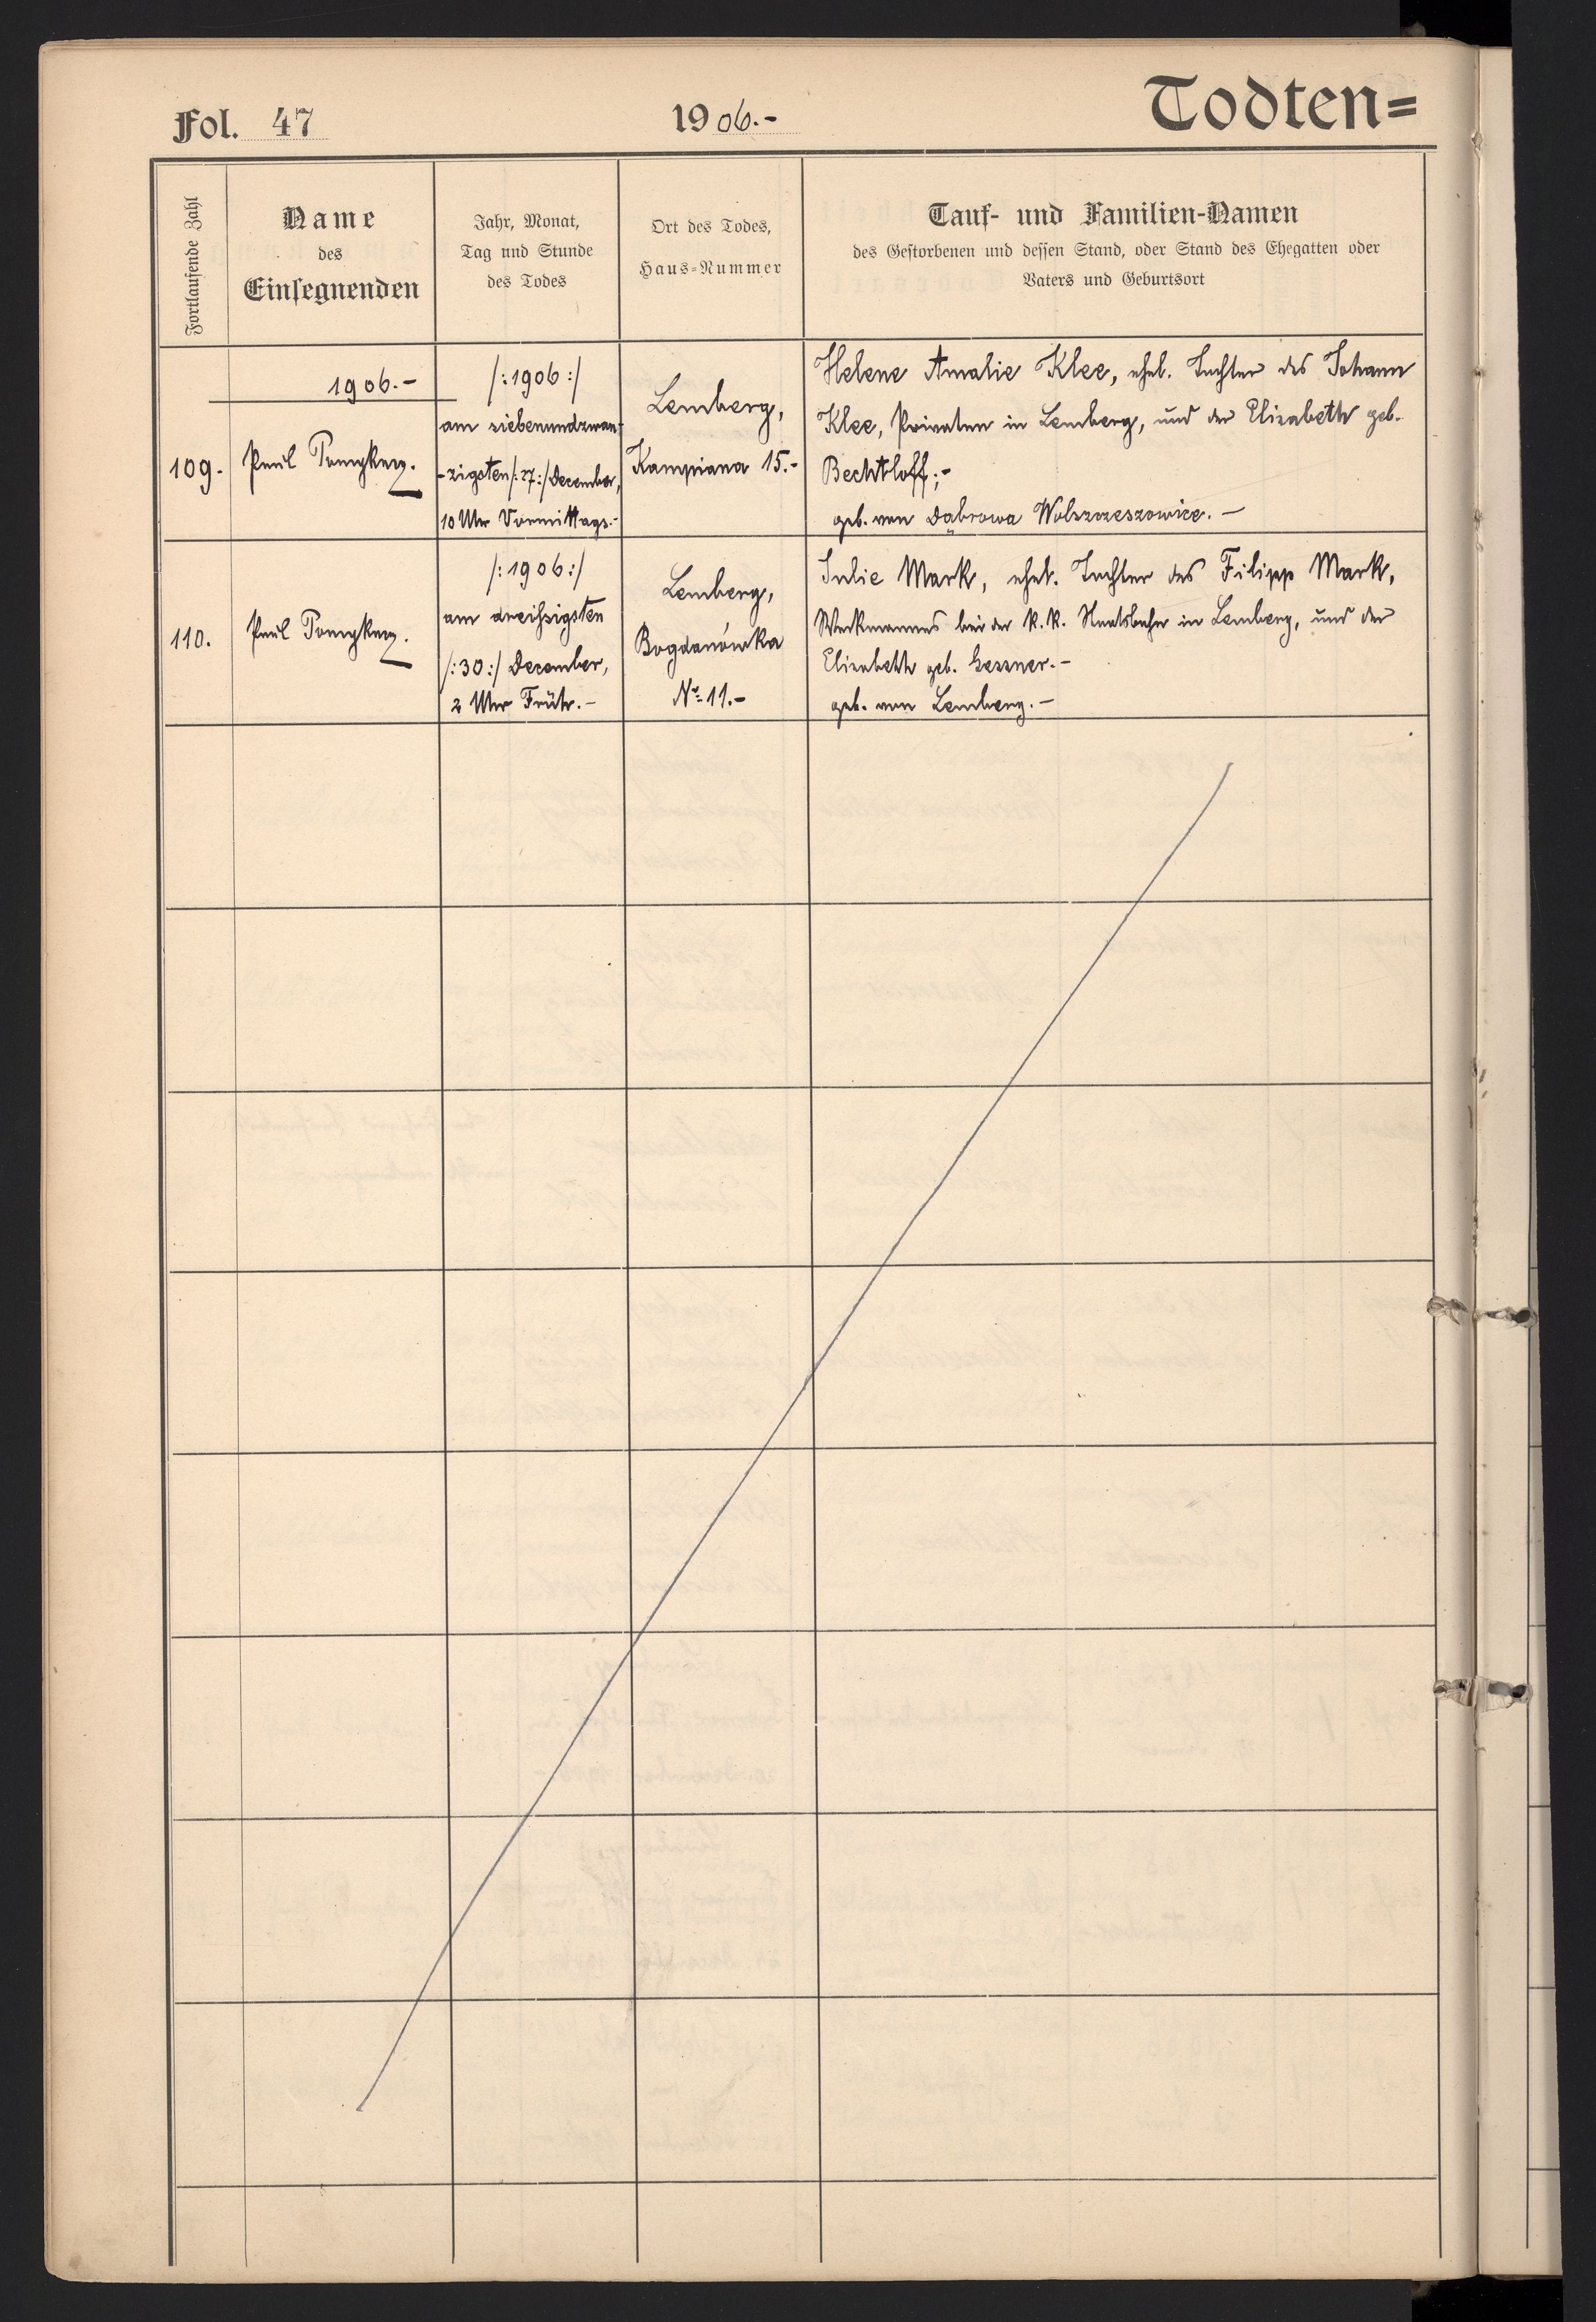 Fol. 47
1906.-
Todten=
Fortlaufende Zahl
Name
des
Einsegnenden
Jahr, Monat,
Tag und Stunde
des Todes
Ort des Todes,
Haus-Nummer
Tauf- und Familien-Namen
des Gestorbenen und dessen Stand, oder Stand des Ehegatten oder
Vaters und Geburtsort
1906.-
109.
Paul
/:1906:/
am siebenundzwan-
-zigsten /:27:/ December,
10 Uhr Vormittags.-
Lemberg,
Kampiana 15.-
Helene Amalie Klee, ehel. Tochter des Johann
Klee, Privaten in Lemberg, und der Elisabeth geb.
Bechtloff;-
geb. von Dąbrowa
110.
Paul
/:1906:/
am dreißigsten
/:30:/ December,
2 Uhr Früh.-
Lemberg,
Bogdanówka
No 11.-
Julie Mark, ehel. Tochter des Filipp Mark,
Werkmannes bei der k.k. Staatsbahn in Lemberg, und der
Elisabeth geb. Gessner.-
geb. von Lemberg.-